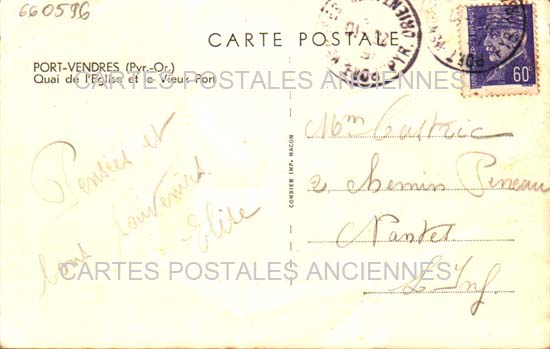 660596
CARTE POSTALE
PORT-VENDRES (Pyr.-Or.)
Quai de l'Eglise et le Vieux Port
60F
PORT-VENDRES
PYR. ORIENT
CARTES POSTALES ANCIENNES
COMBIER IMP. MACON
Pensées et
bons souvenirs
Elise
Mme Castric
2 Chemin Pineau
Nantes
L. Inf.
CARTES POSTALES ANCIENNES